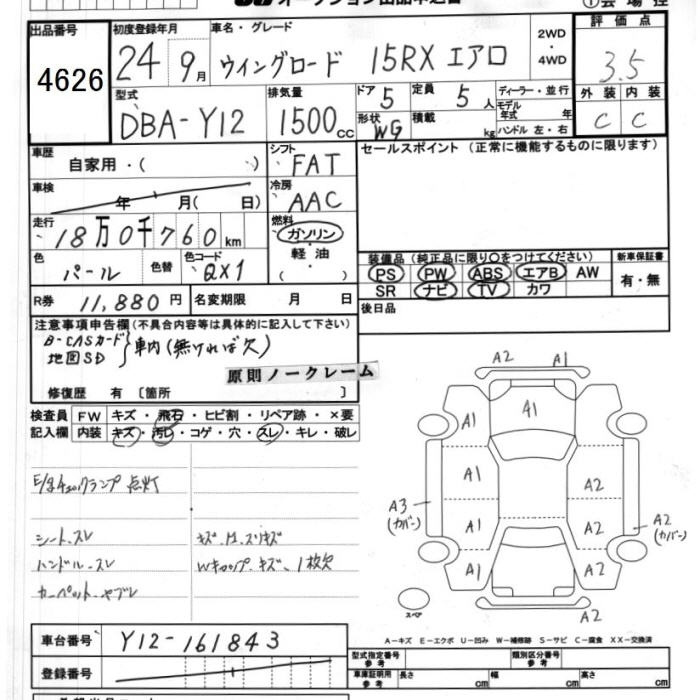 オークション出品申込書
①会場控
出品番号
4626
初度登録年月
24年 9月
車名・グレード
ウイングロード 15RX エアロ
2WD
・
4WD
評価点
3.5
外装 内装
C C
型式
DBA-Y12
排気量
1500cc
ドア 5
定員 5人
形状 WG
積載 kg
ディーラー・並行
モデル年式 年
ハンドル 左・右
車歴
自家用・( )
シフト
FAT
セールスポイント(正常に機能するものに限ります)
車検
年 月( 日)
冷房
AAC
走行
18万0千760km
燃料
ガソリン
・
軽油
・
( )
色
パール
色替
色コード
QX1
装備品(純正品に限り○をつけてください)
新車保証書
PS PW ABS エアB AW
SR ナビ TV カワ
有・無
R券 11,880円
名変期限 月 日
後日品
注意事項申告欄(不具合内容等は具体的に記入して下さい)
B-CASカード
地図SD } 車内(無ければ欠)
原則ノークレーム
修復歴 有〔箇所 〕
検査員
記入欄
FW キズ・飛石・ヒビ割・リペア跡・×要
内装 キズ・汚レ・コゲ・穴・スレ・キレ・破レ
E/gチェックランプ 点灯
シート、スレ
キズ、凹、スリキズ
ハンドル、スレ
Wキャップ、キズ、1枚欠
カーペット、ヤブレ
A2 A1
A1
A1
A1 A2
A3
(カバー)
A1 A2
A2
(カバー)
A1 A2
A2
スペア
A-キズ E-エクボ U-凹み W-補修跡 S-サビ C-腐食 XX-交換済
車台番号
Y12-161843
型式指定番号
参考
類別区分番号
参考
登録番号
車庫証明用
参考
長さ cm
幅 cm
高さ cm